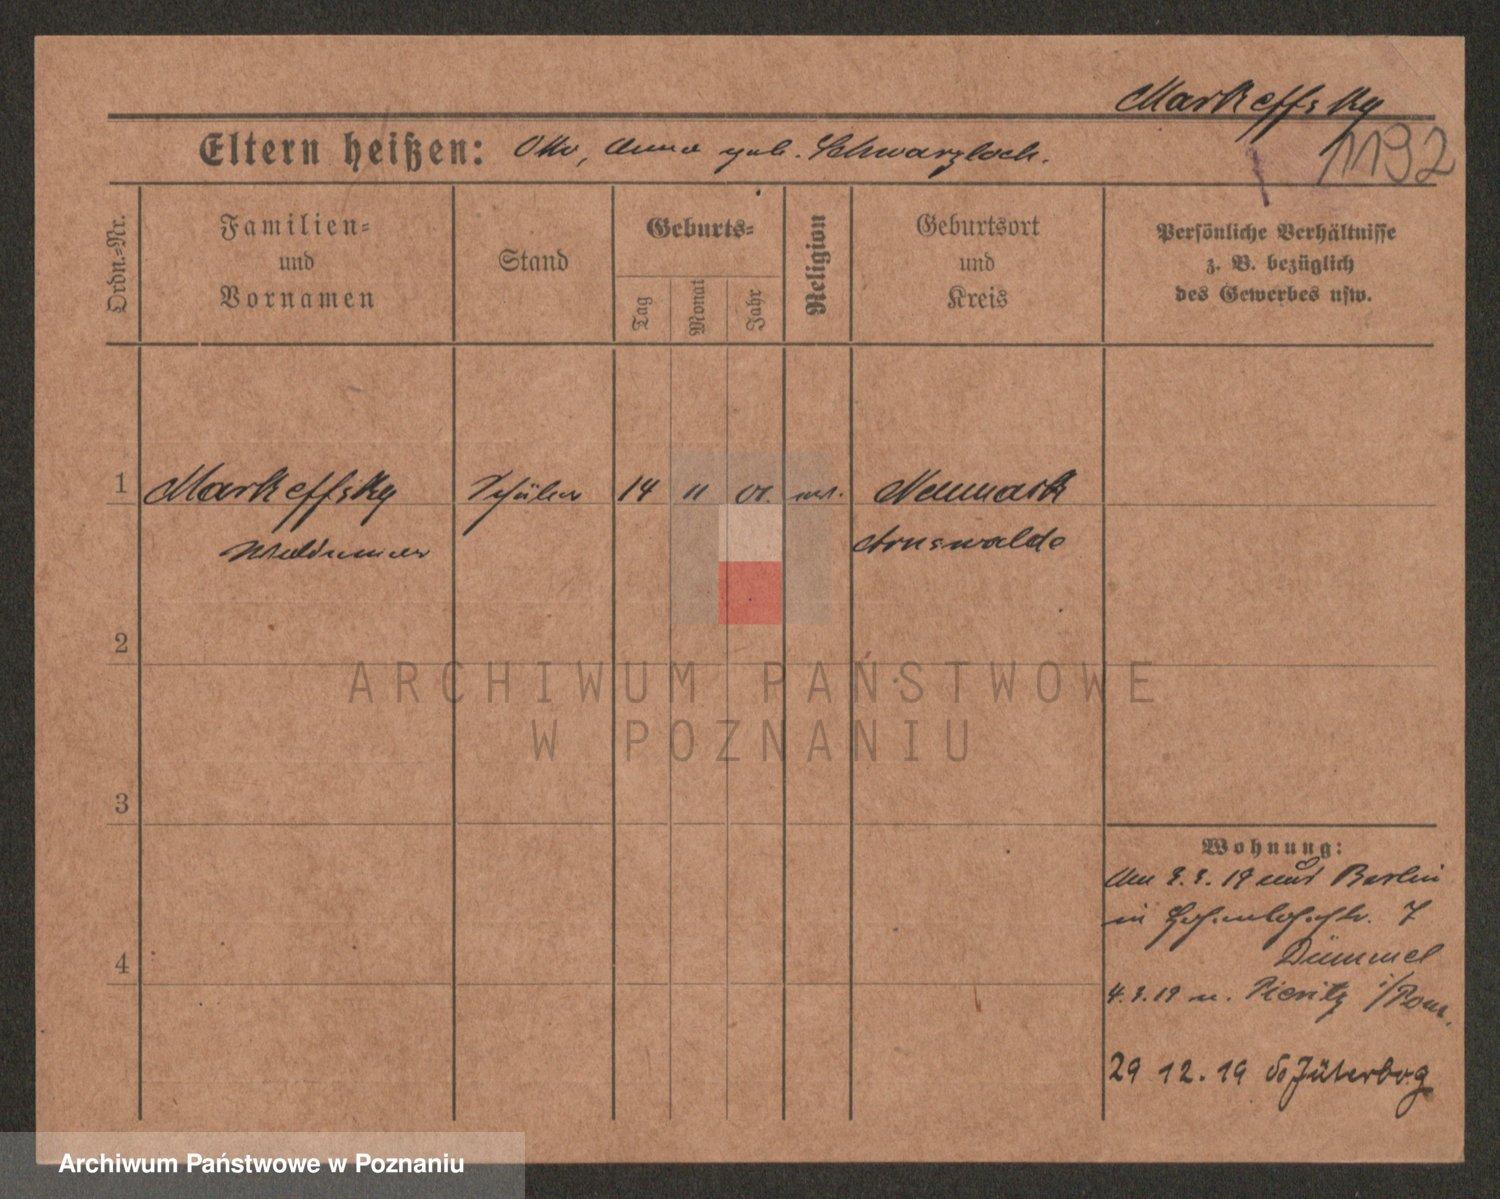 Markeffsky
1192
Eltern heißen: Otto, Anna geb. Schwarzloch.
Ordn.-Nr.
Familien-
und
Vornamen
Stand
Geburts-
Tag
Monat
Jahr
Religion
Geburtsort
und
Kreis
Persönliche Verhältnisse
z. B. bezüglich
des Gewerbes usw.
1 Markeffsky Schüler 14 11 01. Neumark
Arnswalde
2
3
4
Wohnung:
Am 3.3.19 aus Berlin
in 7
Dümmel
4.3.19 n. i/Pom.
29 12.19 Jüterbog
ARCHIWUM PAŃSTWOWE
W POZNANIU
Archiwum Państwowe w Poznaniu